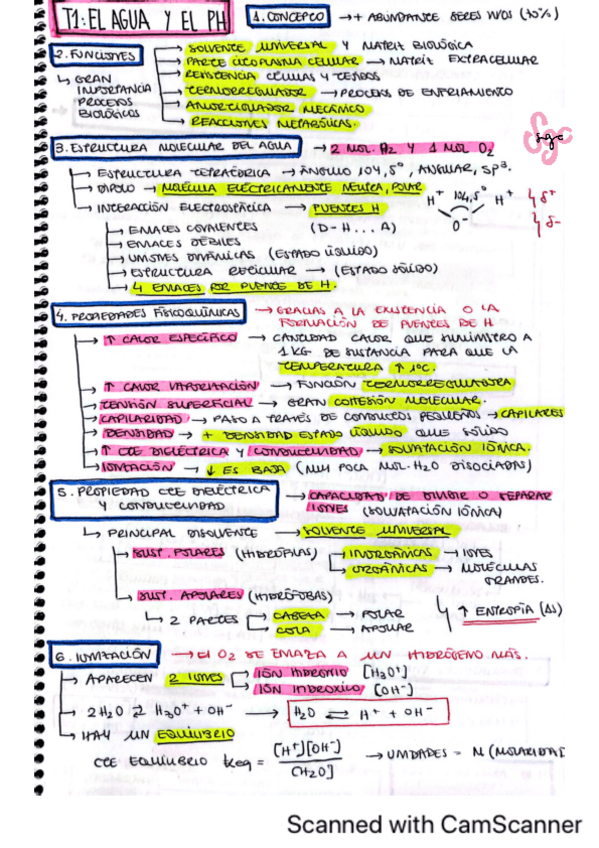 T1: EL AGUA Y EL PH
1. CONCEPTO → + ABUNDANTE SERES VIVOS (70%)
2. FUNCIONES
↳ GRAN IMPORTANCIA PROCESOS BIOLÓGICOS
→ SOLVENTE UNIVERSAL Y MATRIZ BIOLÓGICA
→ PARTE CITOPLASMA CELULAR → MATRIZ EXTRACELULAR
→ RESISTENCIA CÉLULAS Y TEJIDOS
→ TERMORREGULADOR → PROCESOS DE ENFRIAMIENTO
→ AMORTIGUADOR MECÁNICO
→ REACCIONES METABÓLICAS.
sgc
3. ESTRUCTURA MOLECULAR DEL AGUA → 2 MOL. H2 Y 1 MOL O2
→ ESTRUCTURA TETRAÉDRICA → ÁNGULO 104,5°, ANGULAR, SP3.
→ DIPOLO → MOLÉCULA ELÉCTRICAMENTE NEUTRA, POLAR
→ INTERACCIÓN ELECTROSTÁTICA → PUENTES H
H+ 104,5° H+
O-
↳ δ+
↳ δ-
→ ENLACES COVALENTES (D-H...A)
→ ENLACES DÉBILES
→ UNIONES DINÁMICAS (ESTADO LÍQUIDO)
→ ESTRUCTURA RETICULAR → (ESTADO SÓLIDO)
→ 4 ENLACES POR PUENTES DE H.
4. PROPIEDADES FÍSICOQUÍMICAS → GRACIAS A LA EXISTENCIA O LA
FORMACIÓN DE PUENTES DE H
→ ↑ CALOR ESPECÍFICO → CANTIDAD CALOR QUE SUMINISTRO A
1 KG DE SUSTANCIA PARA QUE LA
TEMPERATURA ↑ 1°C.
→ ↑ CALOR VAPORIZACIÓN → FUNCIÓN TERMORREGULADORA
→ TENSIÓN SUPERFICIAL → GRAN COHESIÓN MOLECULAR.
→ CAPILARIDAD → PASO A TRAVÉS DE CONDUCTOS PEQUEÑOS → CAPILARES
→ DENSIDAD → + DENSIDAD ESTADO LÍQUIDO QUE SÓLIDO
→ ↑ CTE DIELÉCTRICA Y CONDUCTIVIDAD → SOLVATACIÓN IÓNICA.
→ IONIZACIÓN → ↓ ES BAJA (MUY POCA MOL. H2O DISOCIADAS)
5. PROPIEDAD CTE DIELÉCTRICA Y CONDUCTIVIDAD → CAPACIDAD DE DIVIDIR O SEPARAR
IONES (SOLVATACIÓN IÓNICA)
↳ PRINCIPAL DISOLVENTE → SOLVENTE UNIVERSAL
→ SUST. POLARES (HIDRÓFILAS) → INORGÁNICAS → IONES
→ ORGÁNICAS → MOLÉCULAS GRANDES.
→ SUST. APOLARES (HIDRÓFOBAS)
↳ 2 PARTES → CABEZA → POLAR
→ COLA → APOLAR
↳ ↑ ENTROPÍA (ΔS)
6. IONIZACIÓN → El O2 SE ENLAZA A UN HIDRÓGENO MÁS.
→ APARECEN 2 IONES → IÓN HIDRONIO [H3O+]
→ IÓN HIDROXILO [OH-]
→ 2H2O ⇄ H3O+ + OH- → H2O ⇄ H+ + OH-
→ HAY UN EQUILIBRIO
CTE EQUILIBRIO Keq = [H+][OH-] / [H2O] → UNIDADES = M (MOLARIDAD
Scanned with CamScanner